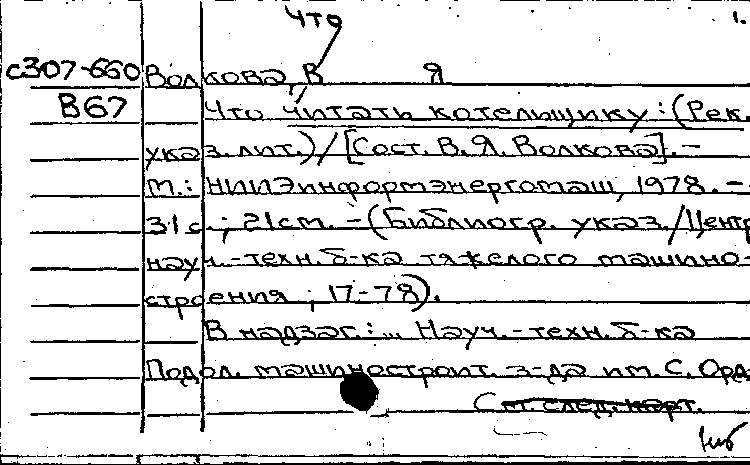 Что 1.
с307-660 Волкова, В Я
В67 Что читать котельщику : (Рек.
указ. лит.) / [Сост. В. Я. Волкова]. –
М. : НИИЭинформэнергомаш, 1978. –
31 с. ; 21 см. – (Библиогр. указ. / Центр
науч.-техн. б-ка тяжелого машино-
строения ; 17-78).
В надзаг. : ... Науч.-техн. б-ка
Подол. машиностроит. з-да им. С. Орд
См. след. карт.